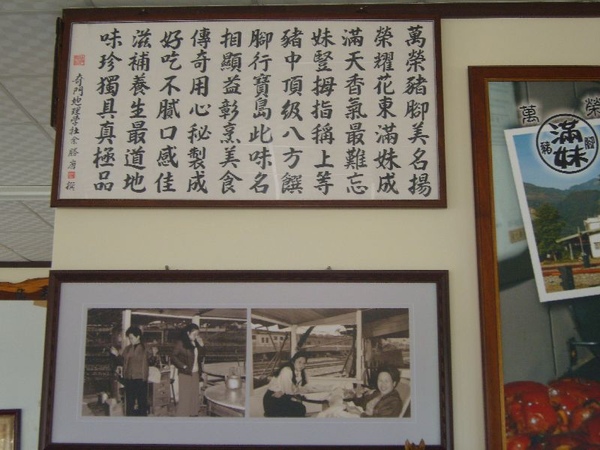 萬榮豬腳美名揚
榮耀花東滿妹成
滿天香氣最難忘
妹豎拇指稱上等
豬中頂級八方饌
腳行寶島此味名
相顯益彰烹美食
傳奇用心秘製成
好吃不膩口感佳
滋補養生最道地
味珍獨具真極品
萬榮
滿妹
豬腳